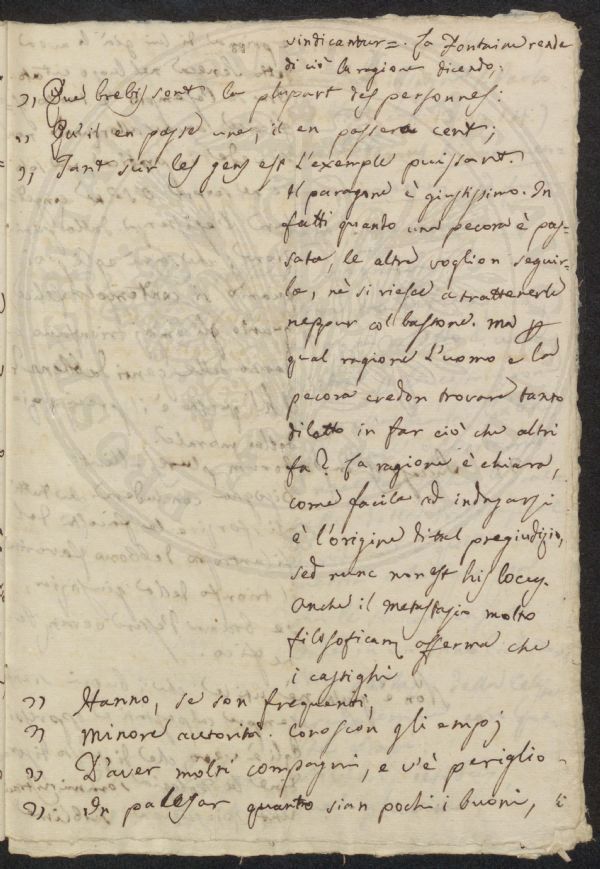 vindicantur =. La Fontaine rende
di ciò la ragione dicendo,
,, Que brebis sont la plupart des personnes:
,, Qu'il en passe une, il en passera cent;
,, Tant sur les gens est l'exemple puissant.
Il paragone è giustissimo. In
fatti quanto una pecora è pas=
sata, le altre voglion seguir=
la, nè si riesce a trattenerle
neppur col bastone. Ma p
qual ragione l'uomo e la
pecora credon trovare tanto
diletto in far ciò che altri
fa? La ragione è chiara,
come facile ad indagarsi
è l'origine di tal pregiudizio,
sed nunc non est his locus.
Anche il Metastasio molto
filosoficam afferma che
i castighi
,, Hanno, se son frequenti,
,, Minore autorità. Conoscon gli empj
,, D'aver molti compagni, e v'è periglio
,, In palesar quanto sian pochi i buoni,